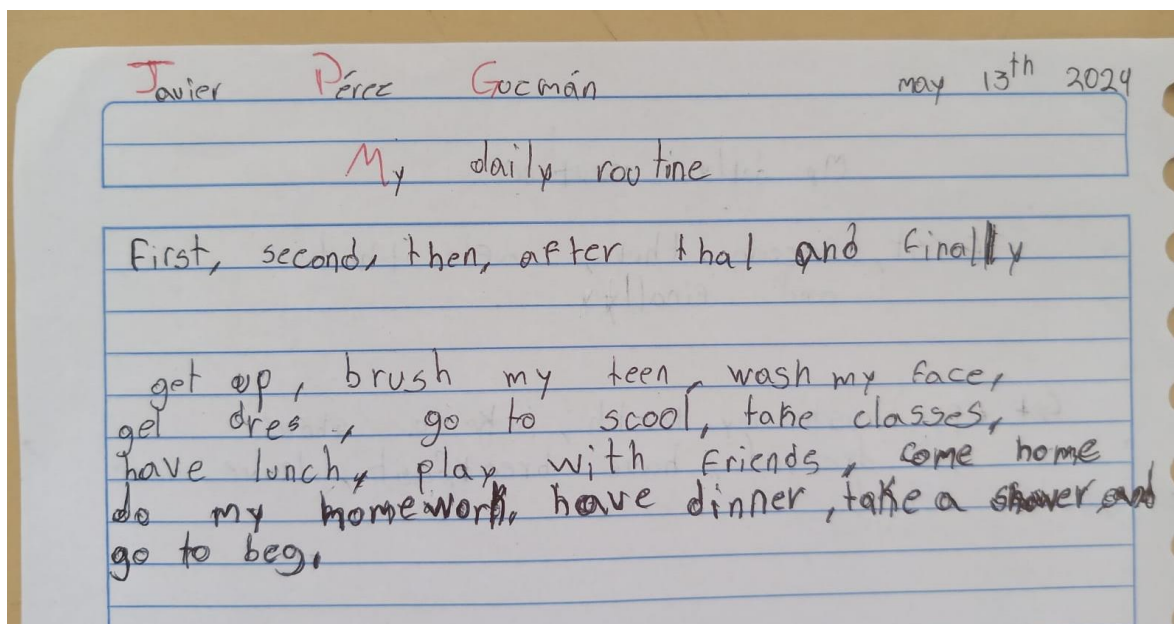 Javier Pérez Gocmán may 13th 2024
My daily routine
First, second, then, after thal and finally
get up, brush my teen, wash my face,
gel dres, go to scool, take classes,
have lunch, play with friends, come home
do my homework, have dinner, take a shower and
go to beg.